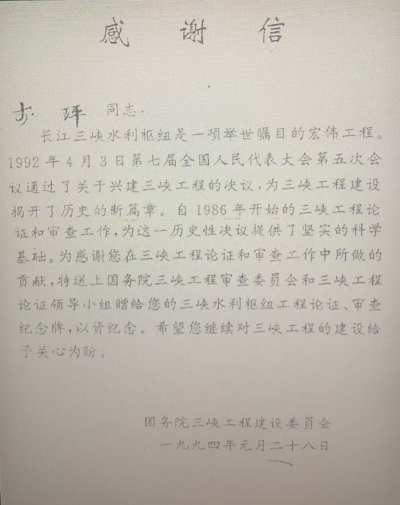 感谢信
坪 同志.
长江三峡水利枢纽是一项举世瞩目的宏伟工程。
1992年4月3日第七届全国人民代表大会第五次会
议通过了关于兴建三峡工程的决议，为三峡工程建设
揭开了历史的新篇章。自1986年开始的三峡工程论
证和审查工作，为这一历史性决议提供了坚实的科学
基础。为感谢您在三峡工程论证和审查工作中所做的
贡献，特送上国务院三峡工程审查委员会和三峡工程
论证领导小组赠给您的三峡水利枢纽工程论证、审查
纪念牌，以资纪念。希望您继续对三峡工程的建设给
予关心为盼。
国务院三峡工程建设委员会
一九九四年元月二十八日